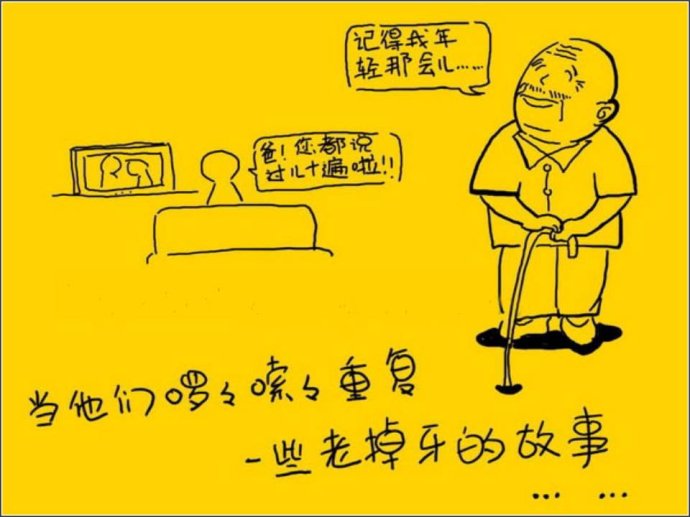 记得我年
轻那会儿……
爸！您都说
过几十遍啦!!
当他们啰々嗦々重复
一些老掉牙的故事
… …